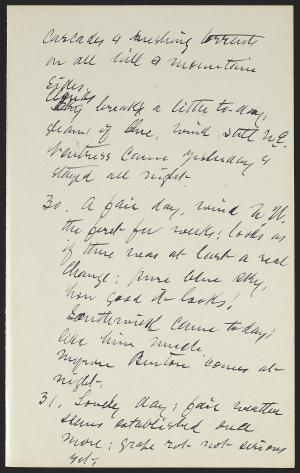 cascades & rushing torrents
on all hill & mountain
sides.
Clouds breaks a little to-day,
gleams of blue, wind still N.E.
Waitress came yesterday &
stayed all night.
30. A fair day, wind N.W.
the first for weeks; looks as
if there was at last a real
change; pure blue sky,
how good it looks!
came to-day;
like him much.
Myron Benton comes at
night.
31. Lovely day; fair weather
seems established once
more; grape rot not serious
yet;